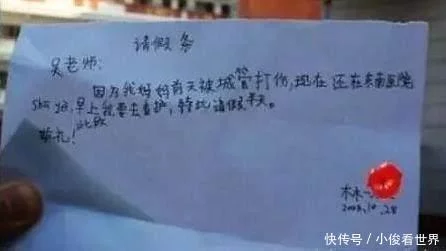 请假条
吴老师：
因为我妈妈前天被城管打伤，现在还在东南医院
shu ye，早上我要去看护，特此请假半天。
此致
敬礼！
林一
2008.10.28
快传号 / 小俊看世界